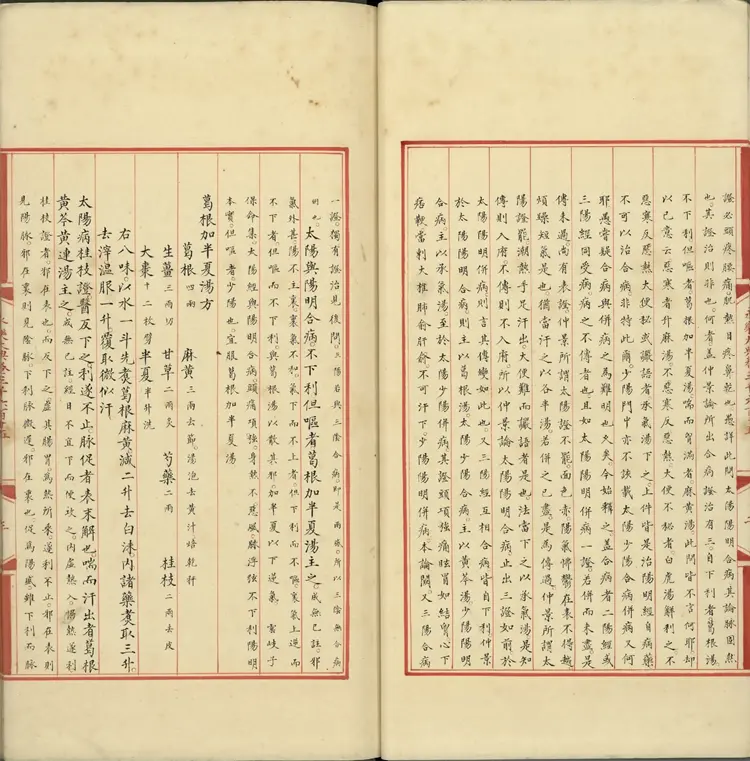 證必頭疼腰痛肌熱目疼鼻乾也愚詳此問太陽陽明合病其論脉固然
也其證治則非也何者蓋仲景論所出合病證治有三自下利者葛根湯
不下利但嘔者葛根加半夏湯喘而胷滿者麻黃湯此問皆不言何耶却
以己意云惡寒者升麻湯不惡寒反惡熱大便不秘者白虎湯鮮利之不
惡寒反惡熱大便秘或讝語者承氣湯下之上件皆是治陽明經自病藥
不可以治合病非特此爾少陽門中亦不該載太陽少陽合病併病又何
耶愚嘗疑合病與併病之為難明也久矣今始釋之蓋合病者二陽經或
三陽經同受病病之不傳者也且如太陽陽明併病一證若併而未盡是
傳未過尚有表證仲景所謂太陽證不罷面色赤陽氣怫鬱在表不得越
煩躁短氣是也猶當汗之以各半湯若併之已盡是為傳過仲景所謂太
陽證罷潮熱手足汗出大便難而讝語者是也法當下之以承氣湯是知
傳則入府不傳則不入府所以仲景論太陽陽明合病止出三證如前於
太陽陽明併病則言其傳變如此也又三陽經互相合病皆自下利仲景
於太陽陽明合病則主以葛根湯太陽少陽合病主以黃芩湯少陽陽明
合病主以承氣湯至於太陽少陽併病其證頭項強痛眩冒如結胷心下
痞鞕當刺大椎肺俞肝俞不可汗下少陽陽明併病本論闕又三陽合病
一證獨有證治見後問三陽若與三陰合病即是兩感所以三陰無合病
例也太陽與陽明合病不下利但嘔者葛根加半夏湯主之成無已註邪
氣外甚陽不主裏裏氣不和氣下而不上者但下利而不嘔裏氣上逆而
不下者但嘔而不下利與葛根湯以散其邪加半夏以下逆氣 雲岐子
保命集太陽經與陽明合病頭痛項強身熱不惡風脉浮弦不下利陽明
本實但嘔者少陽也宜服葛根加半夏湯
葛根加半夏湯方
葛根四兩 麻黃三兩去節湯泡去黃汁焙乾秤
生薑三兩切 甘草二兩炙 芍藥二兩 桂枝二兩去皮
大棗十二枚擘 半夏半升洗
右八味以水一斗先煮葛根麻黃減二升去白沫內諸藥煮取三升
去滓溫服一升覆取微似汗
太陽病桂枝證醫反下之利遂不止脉促者表未解也喘而汗出者葛根
黃芩黃連湯主之成無已註經曰不宜下而便攻之內虛熱入協熱遂利
桂枝證者邪在表也而反下之虛其腸胃為熱所乘遂利不止邪在表則
見陽脉邪在裏則見陰脉下利脉微遲邪在裏也促為陽盛雖下利而脉